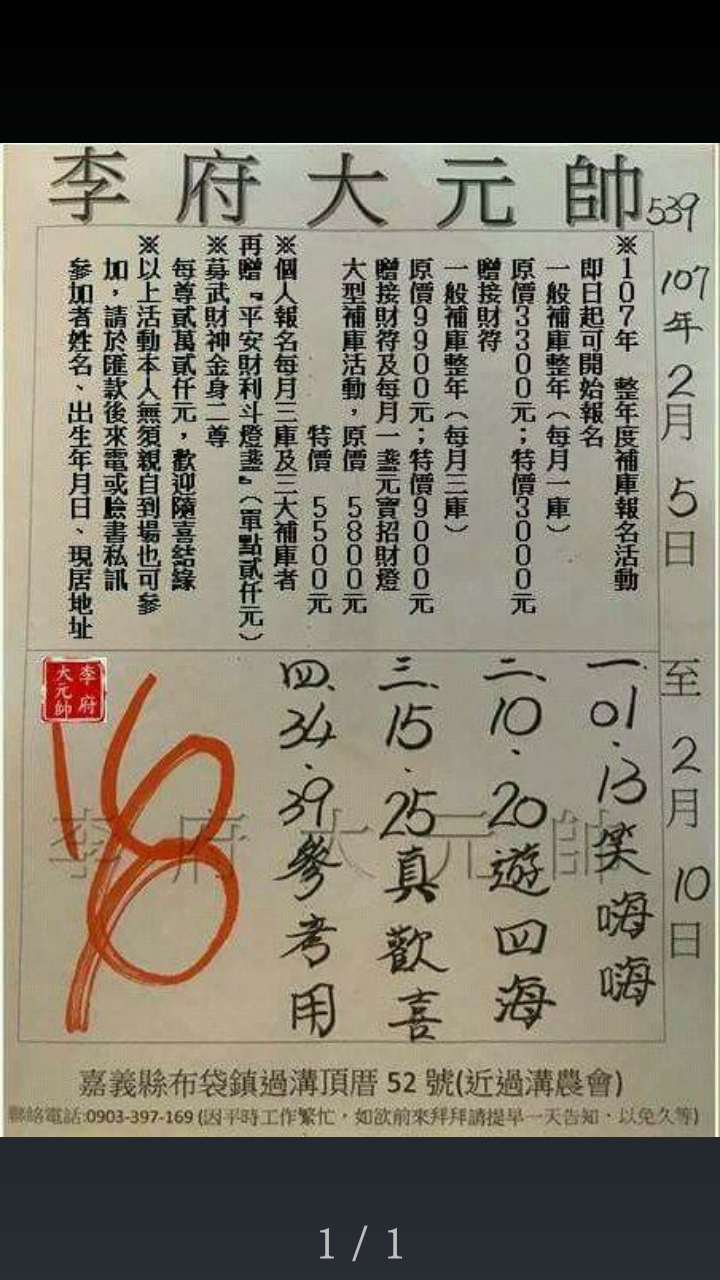 李府大元帥
539
107年2月5日至2月10日
※107年 整年度補庫報名活動
即日起可開始報名
一般補庫整年（每月一庫）
原價3300元；特價3000元
贈接財符
一般補庫整年（每月三庫）
原價9900元；特價9000元
贈接財符及每月一盞元寶招財燈
大型補庫活動，原價 5800元
特價 5500元
※個人報名每月三庫及三大補庫者
再贈『平安財利斗燈盞』（單點貳仟元）
※募武財神金身二尊
每尊貳萬貳仟元，歡迎隨喜結緣
※以上活動本人無須親自到場也可參
加，請於匯款後來電或臉書私訊
參加者姓名、出生年月日、現居地址
一、01.13笑嗨嗨
二、10.20遊四海
三、15.25真歡喜
四、34.39參考用
李府
大元帥
李府大元帥
嘉義縣布袋鎮過溝頂厝 52 號(近過溝農會)
聯絡電話:0903-397-169 (因平時工作繁忙，如欲前來拜拜請提早一天告知，以免久等)
1 / 1